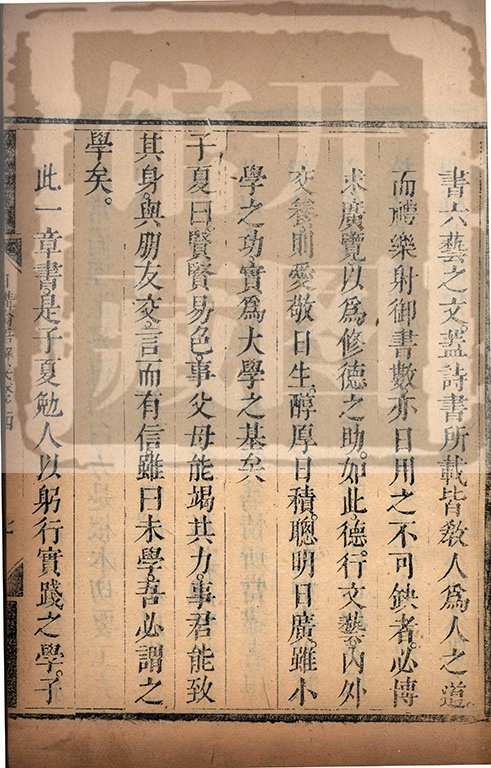 書六藝之文。蓋詩書所載皆教人爲人之道
而禮樂射御書數亦日用之不可缺者。必博
求廣覽以爲修德之助。如此德行文藝內外
交養。則愛敬日生。醇厚日積。聰明日廣。雖小
學之功。實爲大學之基矣
子夏曰。賢賢易色。事父母能竭其力。事君能致
其身。與朋友交言而有信。雖曰未學。吾必謂之
學矣。
此一章書。是子夏勉人以躬行實踐之學。子